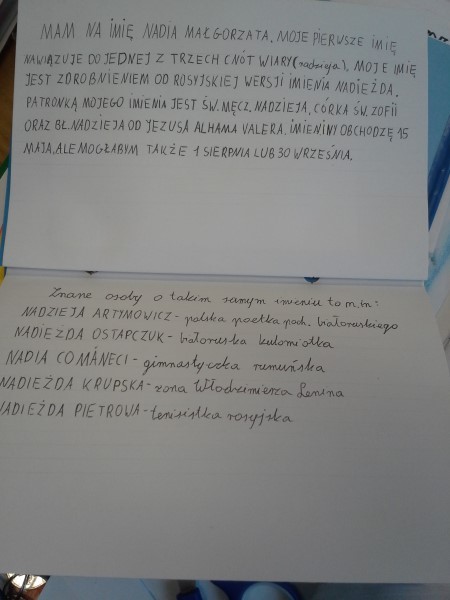 MAM NA IMIĘ NADIA MAŁGORZATA. MOJE PIERWSZE IMIĘ
NAWIĄZUJE DO JEDNEJ Z TRZECH CNÓT WIARY(nadzieja). MOJE IMIĘ
JEST ZDROBNIENIEM OD ROSYJSKIEJ WERSJI IMIENIA NADIEŻDA.
PATRONKĄ MOJEGO IMIENIA JEST ŚW. MĘCZ. NADZIEJA, CÓRKA ŚW. ZOFII
ORAZ BŁ. NADZIEJA OD JEZUSA ALHAMA VALERA. IMIENINY OBCHODZĘ 15
MAJA, ALE MOGŁABYM TAKŻE 1 SIERPNIA LUB 30 WRZEŚNIA.
Znane osoby o takim samym imieniu to m.in:
NADZIEJA ARTYMOWICZ - polska poetka poch. białoruskiego
NADIEŻDA OSTAPCZUK - białoruska kulomiotka
NADIA COMĂNECI - gimnastyczka rumuńska
NADIEŻDA KRUPSKA - żona Włodzimierza Lenina
NADIEŻDA PIETROWA - tenisistka rosyjska